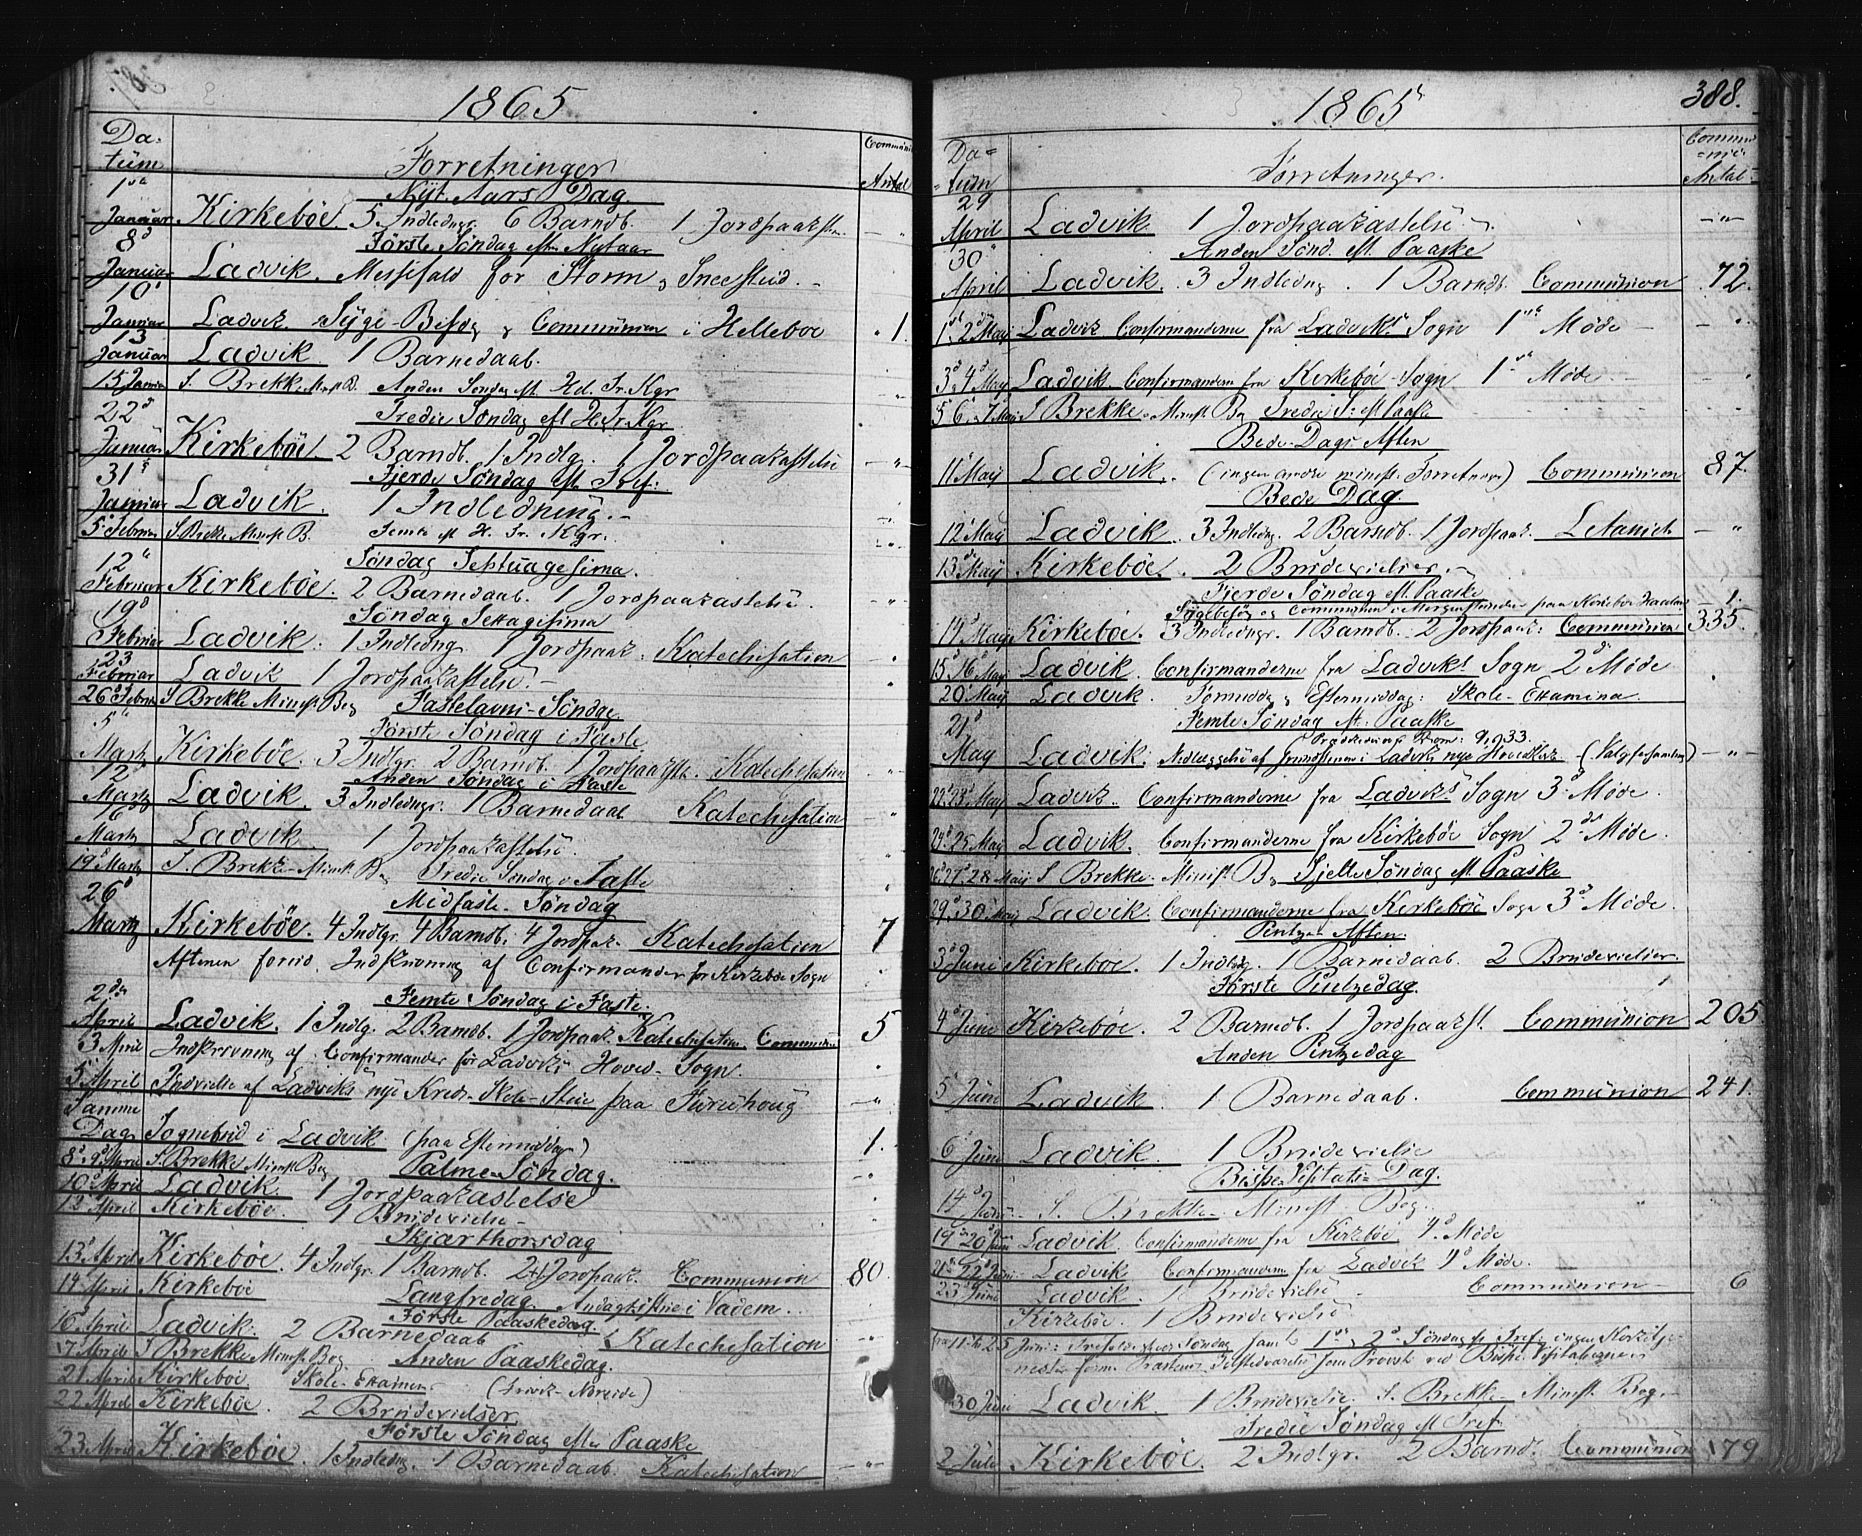 1865
Datum Forretninger Communi Antal
1ste Nyt Aars Dag
Januar Kirkebøe. 5 Indledng. 6 Barndb. 1 Jordpaakast
8d Første Søndag efter Nytaar
Januar Ladvik. Messefald for Storm og Sneestuid.
10
Januar Ladvik Syge-Besøg og Communion i Hellebøe 1.
13
Januar Ladvik 1 Barnedaab.
15 Januar S. Brekke Minist B. Anden Søndag eft Hel. Tr. Kgr
22d Tredie Søndag eft H. Tr. Kgr
Januar Kirkebøe 2 Barndb. 1 Indlg. 1 Jordpaakastelse
31 Fjerde Søndag eft
Januar Ladvik. 1 Indledning.
5 Februar S. Brekke Minist B. Femte eft H. Tr. Kgr.
12 Søndag Septuagesima.
Februar Kirkebøe. 2 Barnedaab. 1 Jordpaakastelse.
19d Søndag Sexagesima
Februar Ladvik. 1 Indledng 1 Jordpaak. Katechisation
23
Februar Ladvik 1 Jordpaakastelse.
26 Febr S. Brekke Minist. Bog Fastelavns-Søndag.
5te Første Søndag i Faste
Martz Kirkebøe. 3 Indlgr. 2 Barndb. 1 Jordpaakst. Katechisation
12 Anden Søndag i Faste
Martz Ladvik. 3 Indledngr. 1 Barnedaab Katechisation
16
Martz Ladvik 1 Jordpaakastelse.
19 Martz S. Brekke-Minist. B. Tredie Søndag i Faste
26d Midfaste Søndag
Martz Kirkebøe. 4 Indlgr. 4 Barndb. 4 Jordpak. Katechisation 7
Aftenen forud. Indskrivning af Confirmander for Kirkebøe Sogn
2den Femte Søndag i Faste
April Ladvik. 1 Indlg. 2 Barndb. 1 Jordpaak. Katechisation Communion 5
3 April Indskrivning af Confirmander for Ladviks Hoved-Sogn.
5 April Indvielse af Ladviks nye Kreds-Skole-Stue paa
Samme
Dag Sognebud i Ladvik (paa Eftermiddag) 1.
8d 9d April S. Brekke Minist Bog Palme-Søndag.
10 April Ladvik 1 Jordpaakastelse
12 April Kirkebøe. 1 Brudevielse
Skjærthorsdag
13 April Kirkebøe. 4 Indlgr. 1 Barndb. 2 Jordpaak. Communion 80.
14 April Kirkebøe Langfredag. i Vadem.
Første Paaskedag.
16 April Ladvik. 2 Barnedaab Katechisation
17 April S. Brekke Minist. Bog. Anden Paaskedag.
21 April Kirkebøe Skole-Examen
22 April Kirkebøe. 2 Brudevielser
Første Søndag efter Paaske
23 April Kirkebøe. 1 Indledng 1 Barnedaab. Katechisation
1865 388.
Datum Forretninger. Communi Antal
29
April Ladvik 1 Jordpaakastelse
30 Anden Sønd. eft. Paaske
April Ladvik. 3 Indledng. 1 Barndb. Communion 72.
1ste 2d May Ladvik Confirmanderne fra Ladviks Sogn 1ste Møde
3d 4d May Ladvik. Confirmanderne fra Kirkebøe Sogn 1ste Møde
5 6 7 May S Brekke Minist. Bog Tredie S. eft Paaske
Bede-Dags Aften
11 May Ladvik. (ingen andre minist. Forretninger) Communion 87.
Bede Dag
12 May Ladvik. 3 Indledng. 2 Barndb. 1 Jordpaak. Letaniet
13 May Kirkebøe. 2 Brudevielser.
Fjerde Søndag eft. Paaske
Sygebesøg og Communion i paa 1.
14 May Kirkebøe. 3 Indledngr. 1 Barndb. 2 Jordpaak: Communion 335.
15d 16d May Ladvik. Confirmanderne fra Ladviks Sogn 2d Møde
20 May Ladvik. Formiddag og Eftermiddag: Skole-Examina.
21d Femte Søndag eft. Paaske
Rom: 9, 33.
May Ladvik. Nedlæggelse af Grundstenen i Ladviks nye Hovedkirke
22d 23d May Ladvik. Confirmanderne fra Ladviks Sogn 3d Møde.
24d 25 May Ladvik. Confirmanderne fra Kirkebøe Sogn 2den Møde.
26 27. 28 May S Brekke. Minist B. Sjette Søndag eft. Paaske
29 30 May Ladvik. Confirmanderne fra Kirkebøe Sogn 3d Møde.
Pintze Aften.
3d Juni Kirkebøe. 1 Indlg. 1 Barnedaab. 2 Brudevielser
Første Pintzedag.
4d Juni Kirkebøe. 2 Barnedb. 1 Jordpaakst. Communion 205
Anden Pintzedag
5 Juni Ladvik. 1 Barnedaab. Communion 241.
6 Juni Ladvik 1 Brudevielse
Bispe-Visitats-Dag.
14d Juni S. Brekke-Minist. Bog.
19 20 Juni Ladvik. Confirmanderne fra Kirkebøe 4d Møde
21 22 Juni Ladvik Confirmanderne fra Ladvik 4d Møde.
23 Juni Ladvik. 1 Brudevielse Communion 6
Kirkebøe. 1 Brudevielse
fra 11 til 25 Juni: Søndag samt 1ste og 2d Søndag eft Tref: ingen
som Provst ved Bispe Visitatserne
30 Juni Ladvik 1 Brudevielse S. Brekke-Minist. Bog.
Tredie Søndag eft Tref.
2 Juli Kirkebøe 2 Indlgr. 2 Barnd. Communion 179